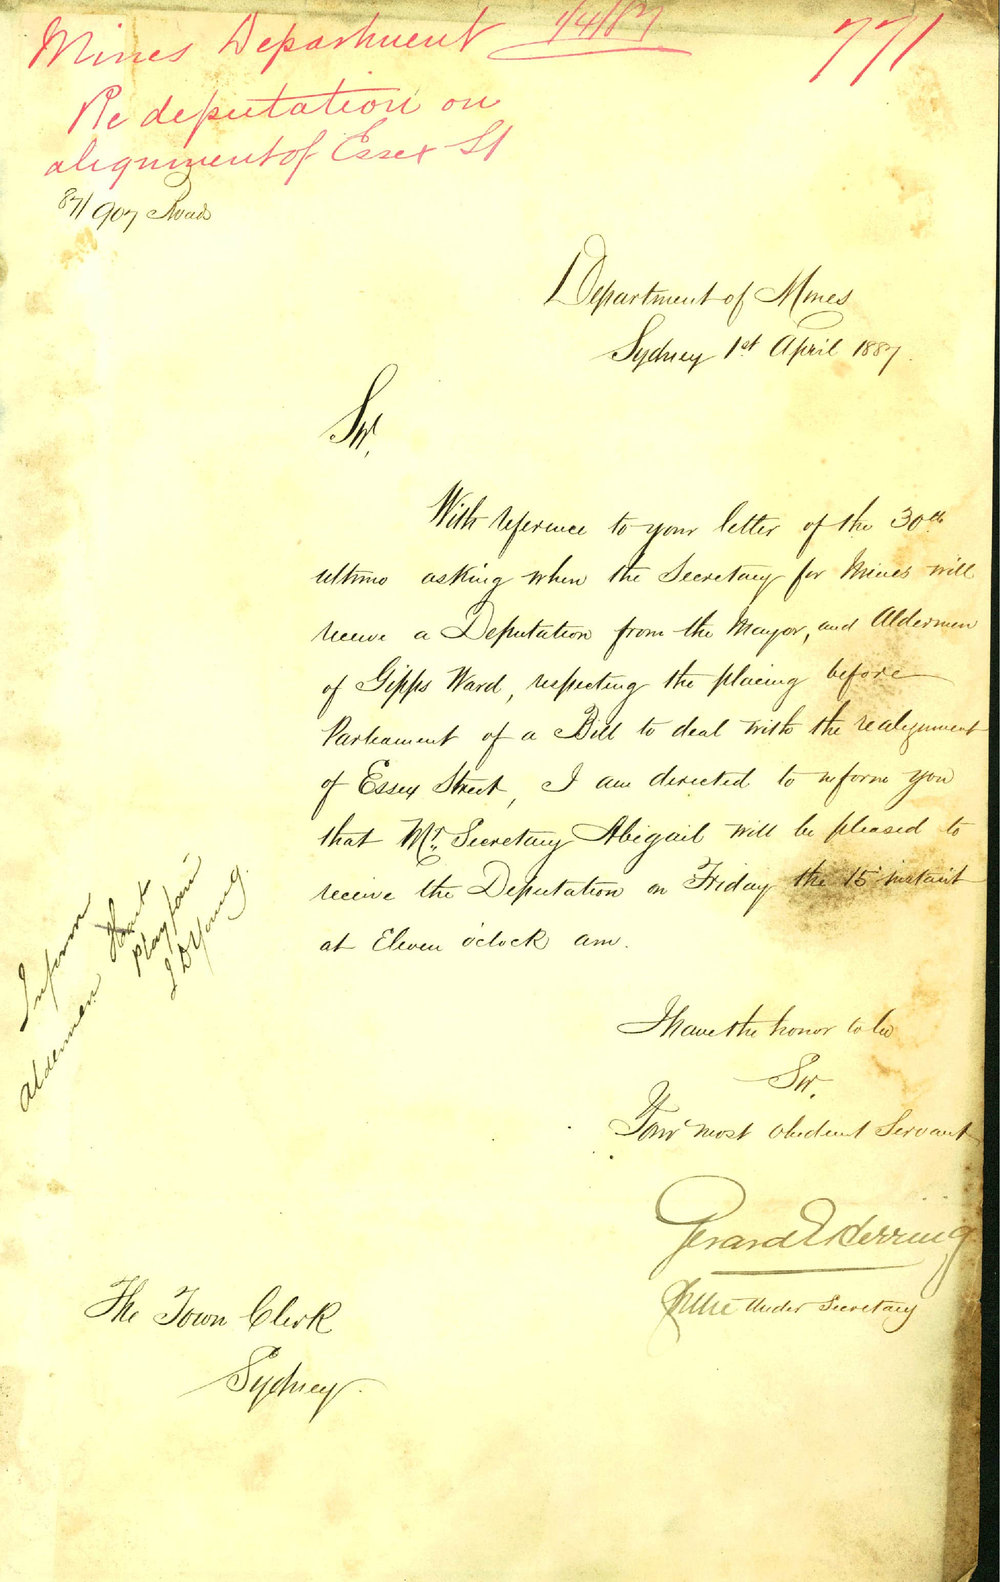 Mines Department 1/4/87 771
Re deputation on
alignment of Essex St
87/907 Roads
Department of Mines
Sydney 1st April 1887.
Sir,
With reference to your letter of the 30th
ultimo asking when the Secretary for Mines will
receive a Deputation from the Mayor, and Aldermen
of Gipps Ward, respecting the placing before
Parliament of a Bill to deal with the realignment
of Essex Street, I am directed to inform you
that Mr. Secretary Abigail will be pleased to
receive the Deputation on Friday the 15 instant
at Eleven o'clock am.
Inform
Aldermen Hart
Playfair
J D Young.
I have the honor to be
Sir.
Your most obedient Servant
Gerard E Herring
for the Under Secretary
The Town Clerk
Sydney.